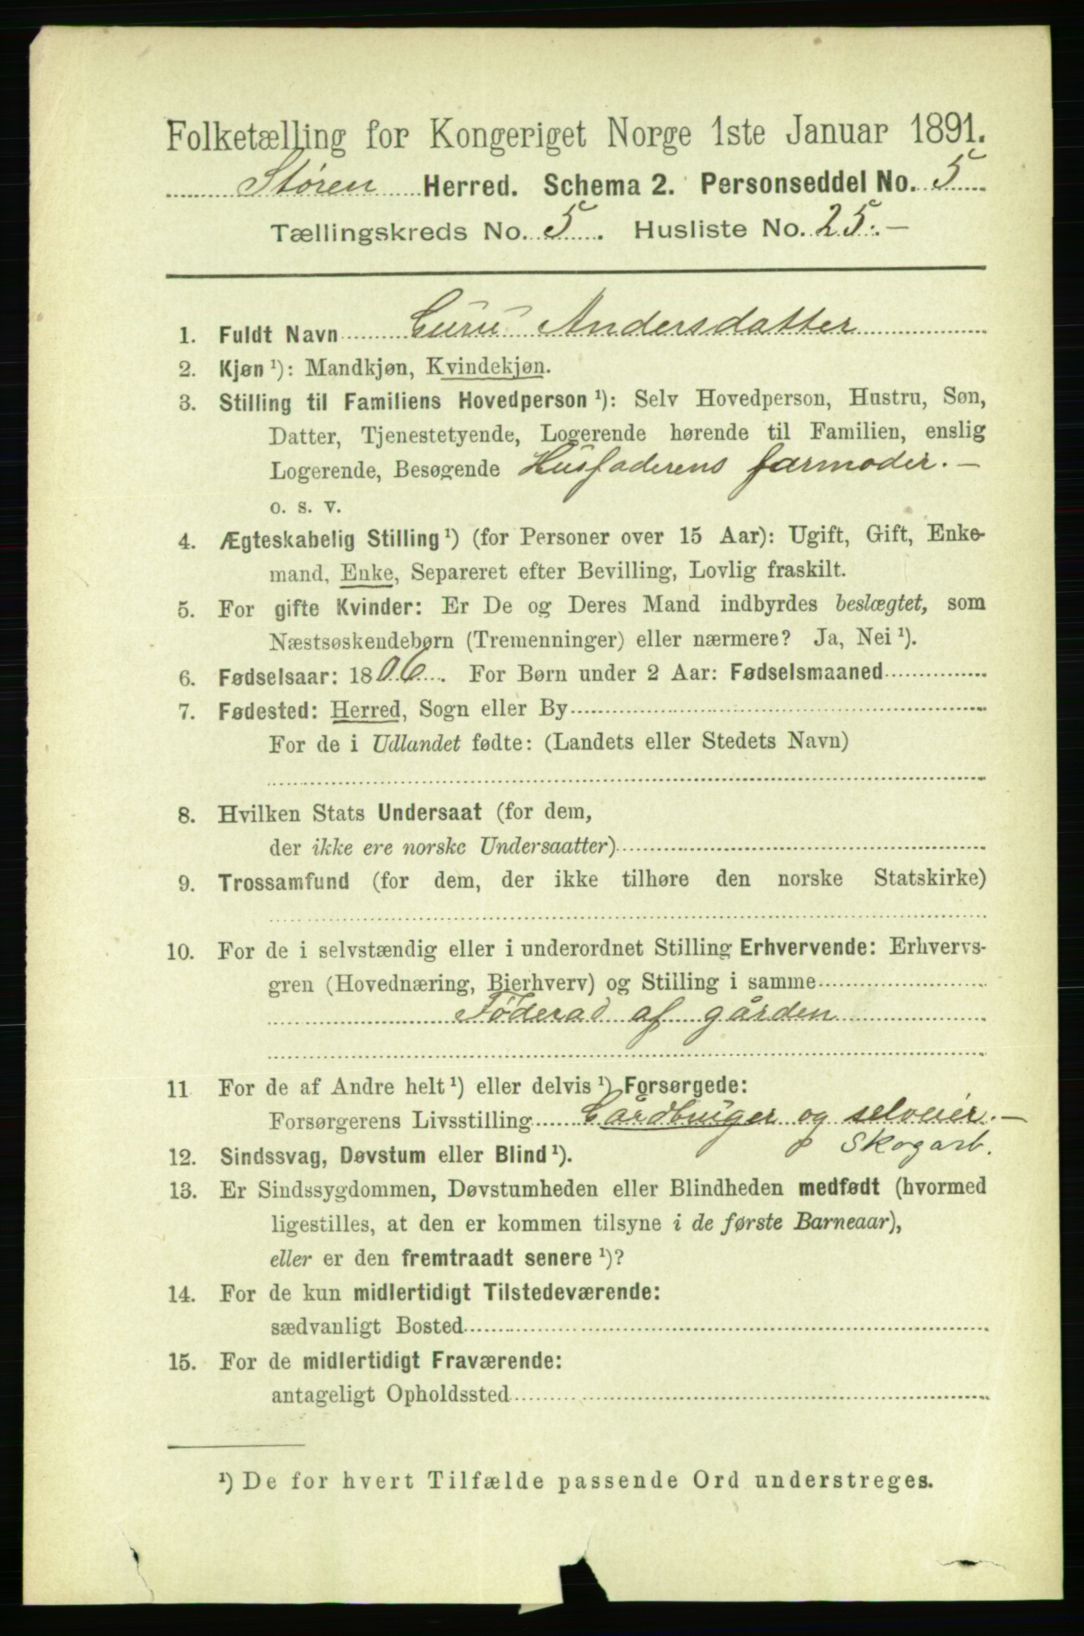 Folketælling for Kongeriget Norge 1ste Januar 1891.
Støren Herred. Schema 2. Personseddel No. 5
Tællingskreds No. 5. Husliste No. 25.-
1. Fuldt Navn Guru Andersdatter
2. Kjøn ¹): Mandkjøn, Kvindekjøn.
3. Stilling til Familiens Hovedperson ¹): Selv Hovedperson, Hustru, Søn,
Datter, Tjenestetyende, Logerende hørende til Familien, enslig
Logerende, Besøgende Husfaderens farmoder.-
o. s. v.
4. Ægteskabelig Stilling ¹) (for Personer over 15 Aar): Ugift, Gift, Enke-
mand, Enke, Separeret efter Bevilling, Lovlig fraskilt.
5. For gifte Kvinder: Er De og Deres Mand indbyrdes beslægtet, som
Næstsøskendebørn (Tremenninger) eller nærmere? Ja, Nei ¹).
6. Fødselsaar: 1806. For Børn under 2 Aar: Fødselsmaaned
7. Fødested: Herred, Sogn eller By
For de i Udlandet fødte: (Landets eller Stedets Navn)
8. Hvilken Stats Undersaat (for dem,
der ikke ere norske Undersaatter)
9. Trossamfund (for dem, der ikke tilhøre den norske Statskirke)
10. For de i selvstændig eller i underordnet Stilling Erhvervende: Erhvervs-
gren (Hovednæring, Bierhverv) og Stilling i samme
Føderad af gården
11 For de af Andre helt ¹) eller delvis ¹) Forsørgede:
Forsørgerens Livsstilling Gårdbruger og selveier.-
Skogarb.
12. Sindssvag, Døvstum eller Blind ¹).
13. Er Sindssygdommen, Døvstumheden eller Blindheden medfødt (hvormed
ligestilles, at den er kommen tilsyne i de første Barneaar),
eller er den fremtraadt senere ¹)?
14. For de kun midlertidigt Tilstedeværende:
sædvanligt Bosted
15. For de midlertidigt Fraværende:
antageligt Opholdssted
¹) De for hvert Tilfælde passende Ord understreges.